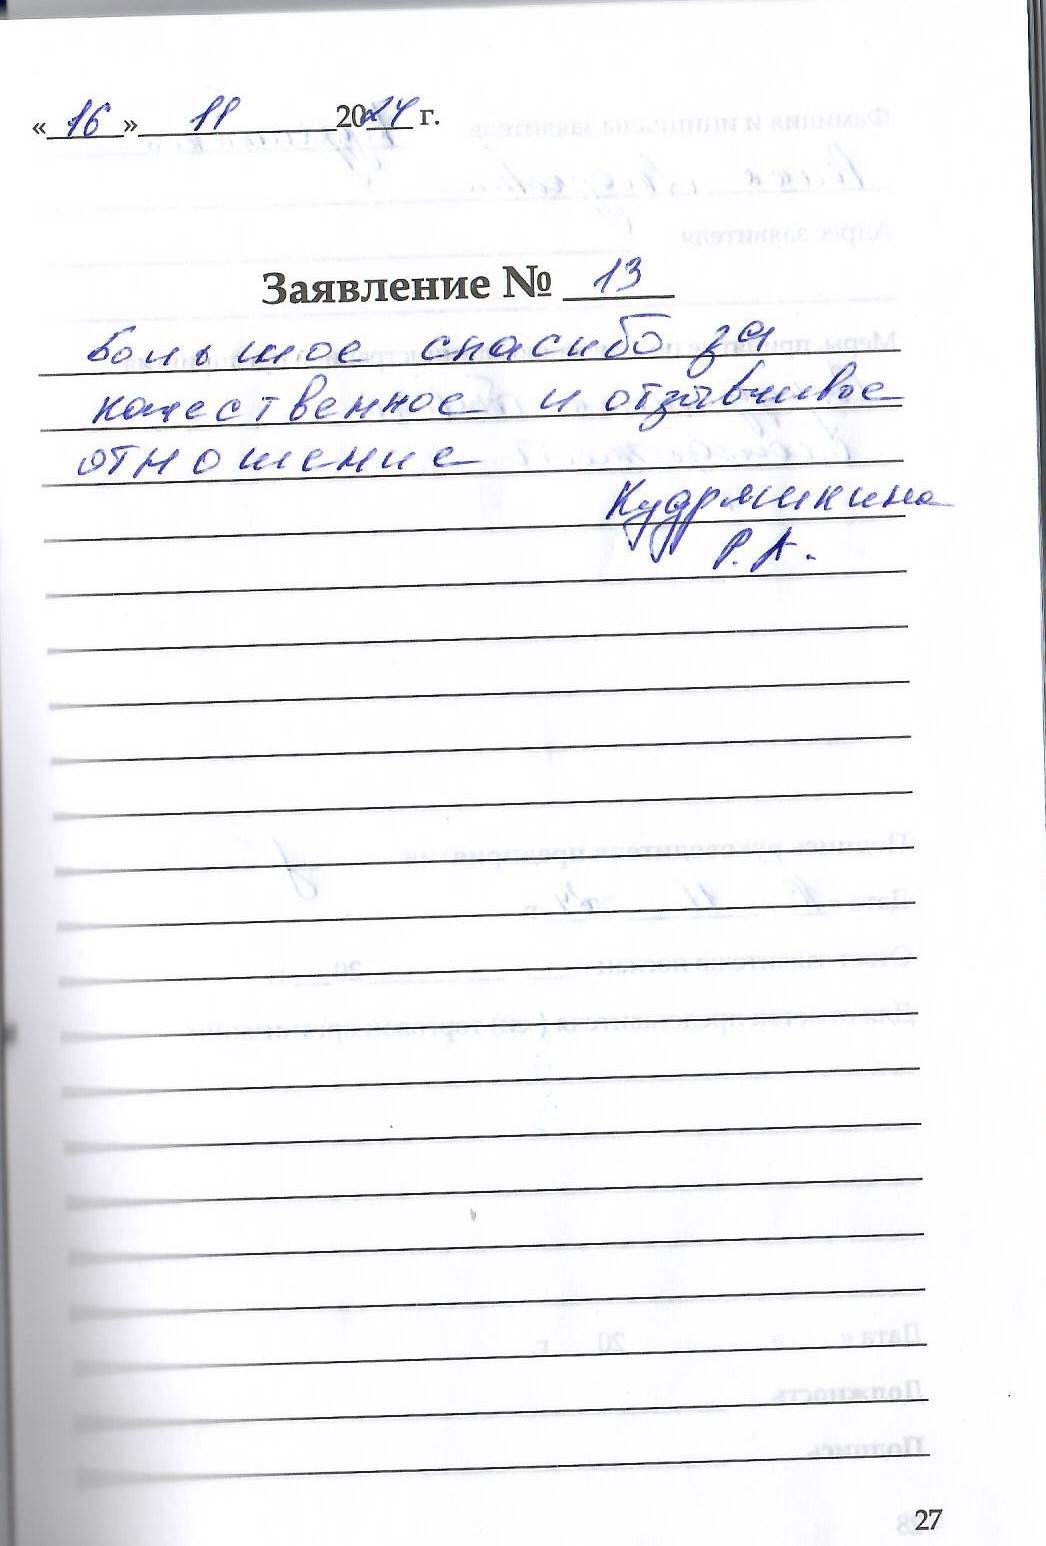 «16» 11 2024 г.
Заявление № 13
Большое спасибо за
качественное и отзывчивое
отношение
Кудряшкина
Р.А.
27